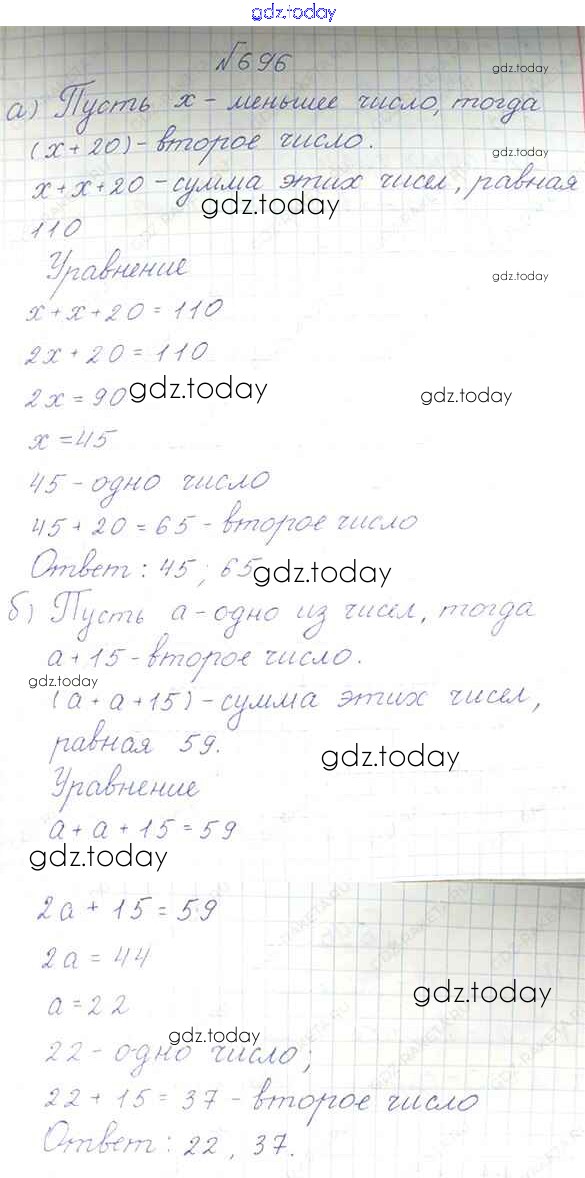 gdz.today
№696
gdz.today
а) Пусть x - меньшее число, тогда
(x+20) - второе число.
gdz.today
x+x+20 - сумма этих чисел, равная
gdz.today
110
Уравнение
gdz.today
x+x+20=110
2x+20=110
2x=90
gdz.today
gdz.today
x=45
45 - одно число
45+20=65 - второе число
Ответ: 45; 65
gdz.today
б) Пусть a - одно из чисел, тогда
a+15 - второе число.
gdz.today
(a+a+15) - сумма этих чисел,
равная 59.
gdz.today
Уравнение
a+a+15=59
gdz.today
2a+15=59
2a=44
gdz.today
a=22
gdz.today
22 - одно число;
22+15=37 - второе число
Ответ: 22, 37.